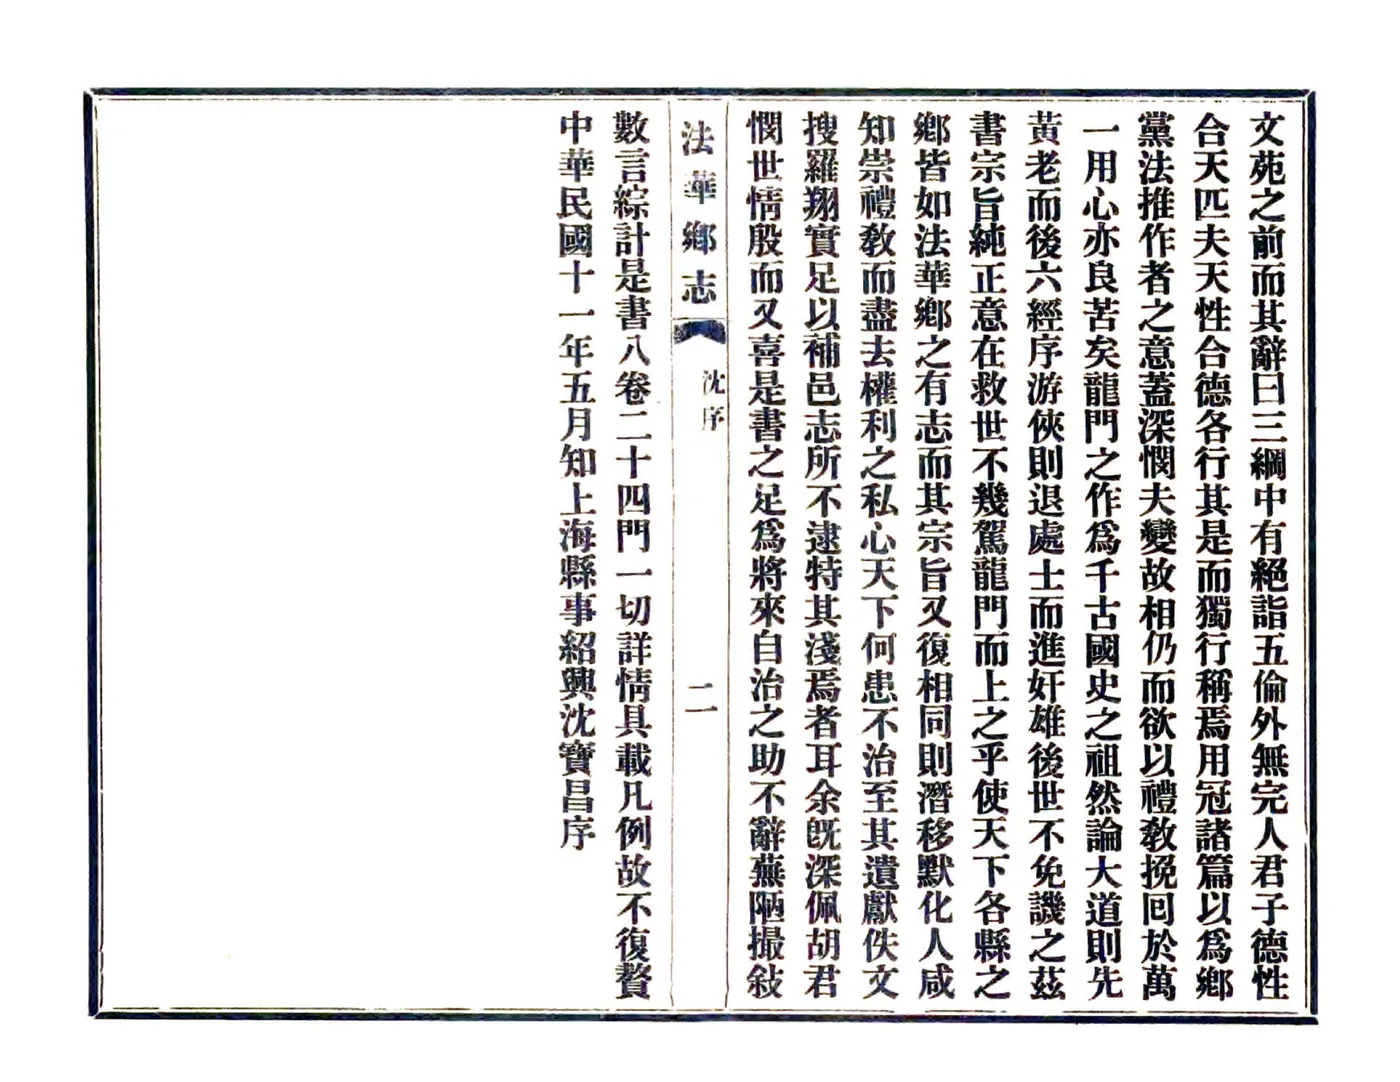 文苑之前而其辭曰三綱中有絕詣五倫外無完人君子德性
合天匹夫天性合德各行其是而獨行稱焉用冠諸篇以爲鄉
黨法推作者之意蓋深憫夫變故相仍而欲以禮敎挽回於萬
一用心亦良苦矣龍門之作爲千古國史之祖然論大道則先
黃老而後六經序游俠則退處士而進奸雄後世不免譏之茲
書宗旨純正意在救世不幾駕龍門而上之乎使天下各縣之
鄉皆如法華鄉之有志而其宗旨又復相同則潛移默化人咸
知崇禮敎而盡去權利之私心天下何患不治至其遺獻佚文
搜羅翔實足以補邑志所不逮特其淺焉者耳余旣深佩胡君
憫世情殷而又喜是書之足爲將來自治之助不辭蕪陋撮敍
法華鄉志
沈序
二
數言綜計是書八卷二十四門一切詳情具載凡例故不復贅
中華民國十一年五月知上海縣事紹興沈寶昌序